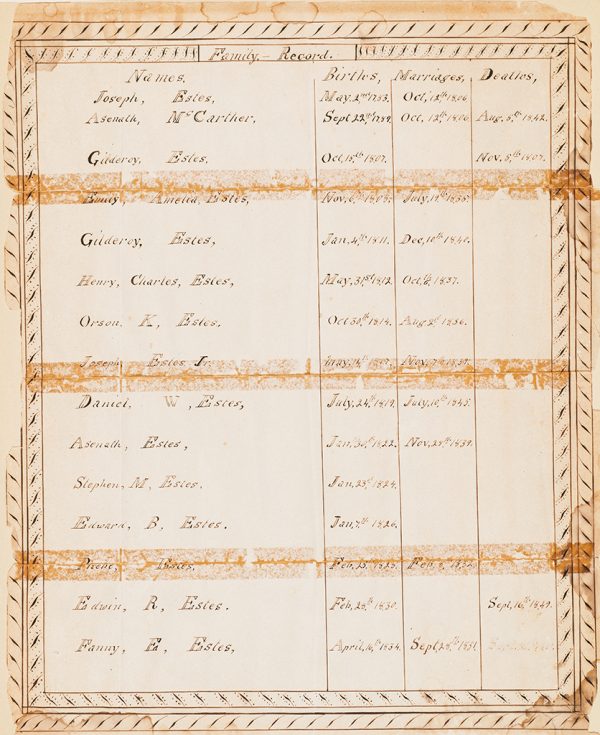 Family – Record.
Names, Births, Marriages, Deaths,
Joseph, Estes, May, 2nd 1783. Oct, 12th 1806
Asenath, McCarther, Sept 22nd 1789. Oct, 12th 1806 Aug. 5th 1842.
Gilderoy, Estes. Oct, 15th 1807. Nov. 8th 1807.
Emily, Amelia, Estes, Nov, 6th July, 19th 1835.
Gilderoy, Estes, Jan, 4th 1811. Dec, 10th 1840.
Henry, Charles, Estes, May, 31st 1812. Oct, 1837.
Orson, K, Estes. Oct 30th 1814. Aug, 1836.
Joseph, Estes Jr. May, Nov,
Daniel, W, Estes, July, 24th 1819. July, 10th 1845.
Asenath, Estes, Jan, 30th 1822. Nov, 28th 1839.
Stephen, M, Estes. Jan, 23d 1824.
Edward, B, Estes. Jan, 7th 1826.
Estes, Feb, Feb,
Edwin, R, Estes. Feb, 25th 1830. Sept, 16th 1849.
Fanny, E, Estes, April, 16th 1834. Sept, 28th 1851.